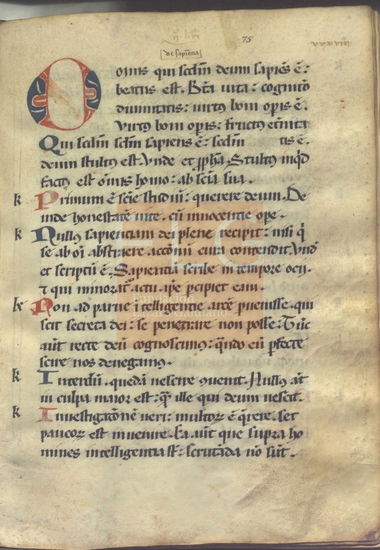 75
De sapientia
Omnis qui scđm deum sapiens ē:
beatus est. Bt̄a uita: cognitio
diuinitatis: uirtus boni opis ē.
Virtus boni opis: fructus et̄nita
Qui scđm sclm sapiens ē: scđm tis ē.
deum stultus est. Vnde et ꝓpha Stultus inqd
factus est om̄is homo: ab scia sua.
k Primum ē scie studiū: querere deum. De
inde honestatē uite cū innocentie ope.
k Nullus sapientiam dei plene recipit: nisi q
se ab om̄i abstraere accōnū cura contendit. Vnd
et scriptū ē. Sapientiā scribe in tempore ocij.
t qui minorat actu ipe pcipiet eam.
k Non ad parue itelligentie arcē puenisse. qui
scit secreta dei: se penetrare non posse. Tūc
aut̄ recte deū cognoscimus: qndo eū pfecte
scire nos denegamus.
k Interdū quedā nescire 9uenit. Nullus aut̄
in culpa maior est: q̄ ille qui deum nescit.
k Inuestigationē ueri: multor ē q̄rere. set
paucor est inuenire. Ea aut̄ que supra ho
mines intelligentia st: scrutāda nō sūt.